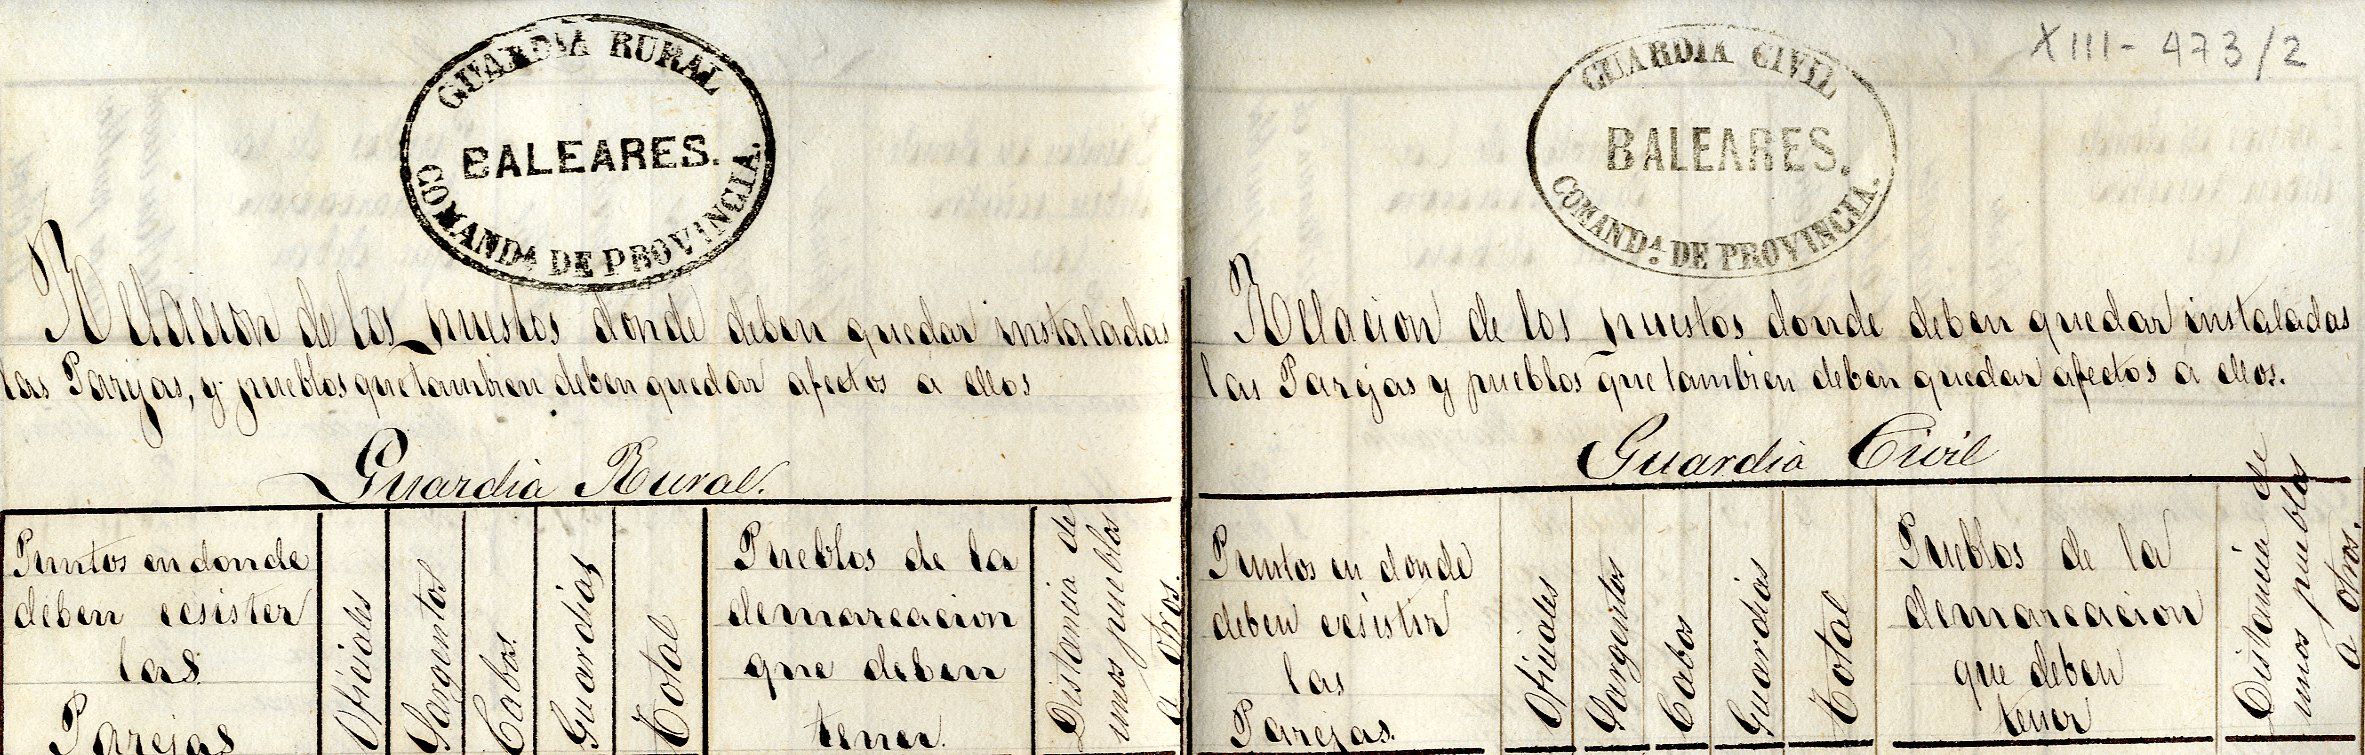 GUARDIA RURAL
BALEARES.
COMANDª DE PROVINCIA.
Relacion de los puestos donde deben quedar instaladas
las Parejas, y pueblos que tambien deben quedar afectos á ellos
Guardia Rural.
Puntos en donde
deben ecsister
las
Parejas
Oficiales
Sargentos
Cabos.
Guardias
Total
Pueblos de la
demarcacion
que deben
tener.
Distancia de
unos pueblos
a otros.
XIII-473/2
GUARDIA CIVIL
BALEARES.
COMANDª. DE PROVINCIA.
Relacion de los puestos donde deben quedar instaladas
las Parejas y pueblos que tambien deben quedar afectos a ellos.
Guardia Civil
Puntos en donde
deben ecsistir
las
Parejas.
Oficiales
Sargentos
Cabos
Guardias
Total
Pueblos de la
demarcacion
que deben
tener
Distancia de
unos pueblos
a otros.